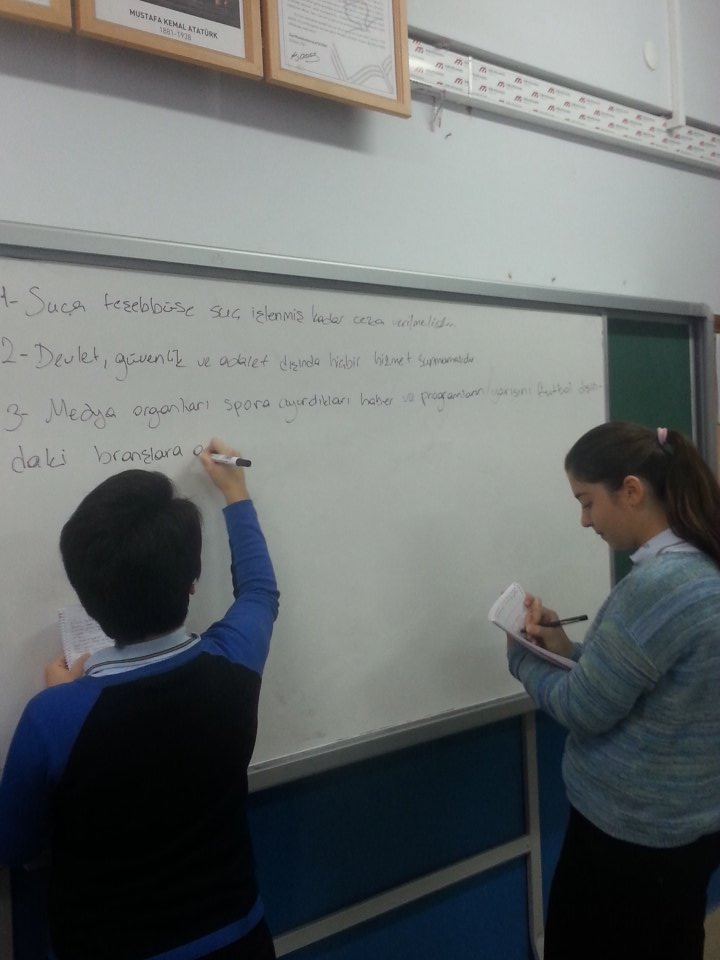 MUSTAFA KEMAL ATATÜRK
1881-1938
1- Suça teşebbüse suç işlenmiş kadar ceza verilmelidir.
2- Devlet, güvenlik ve adalet dışında hiçbir hizmet sunmamalıdır
3- Medya organları spora ayırdıkları haber ve programların yarısını futbol dışın-
daki branşlara a